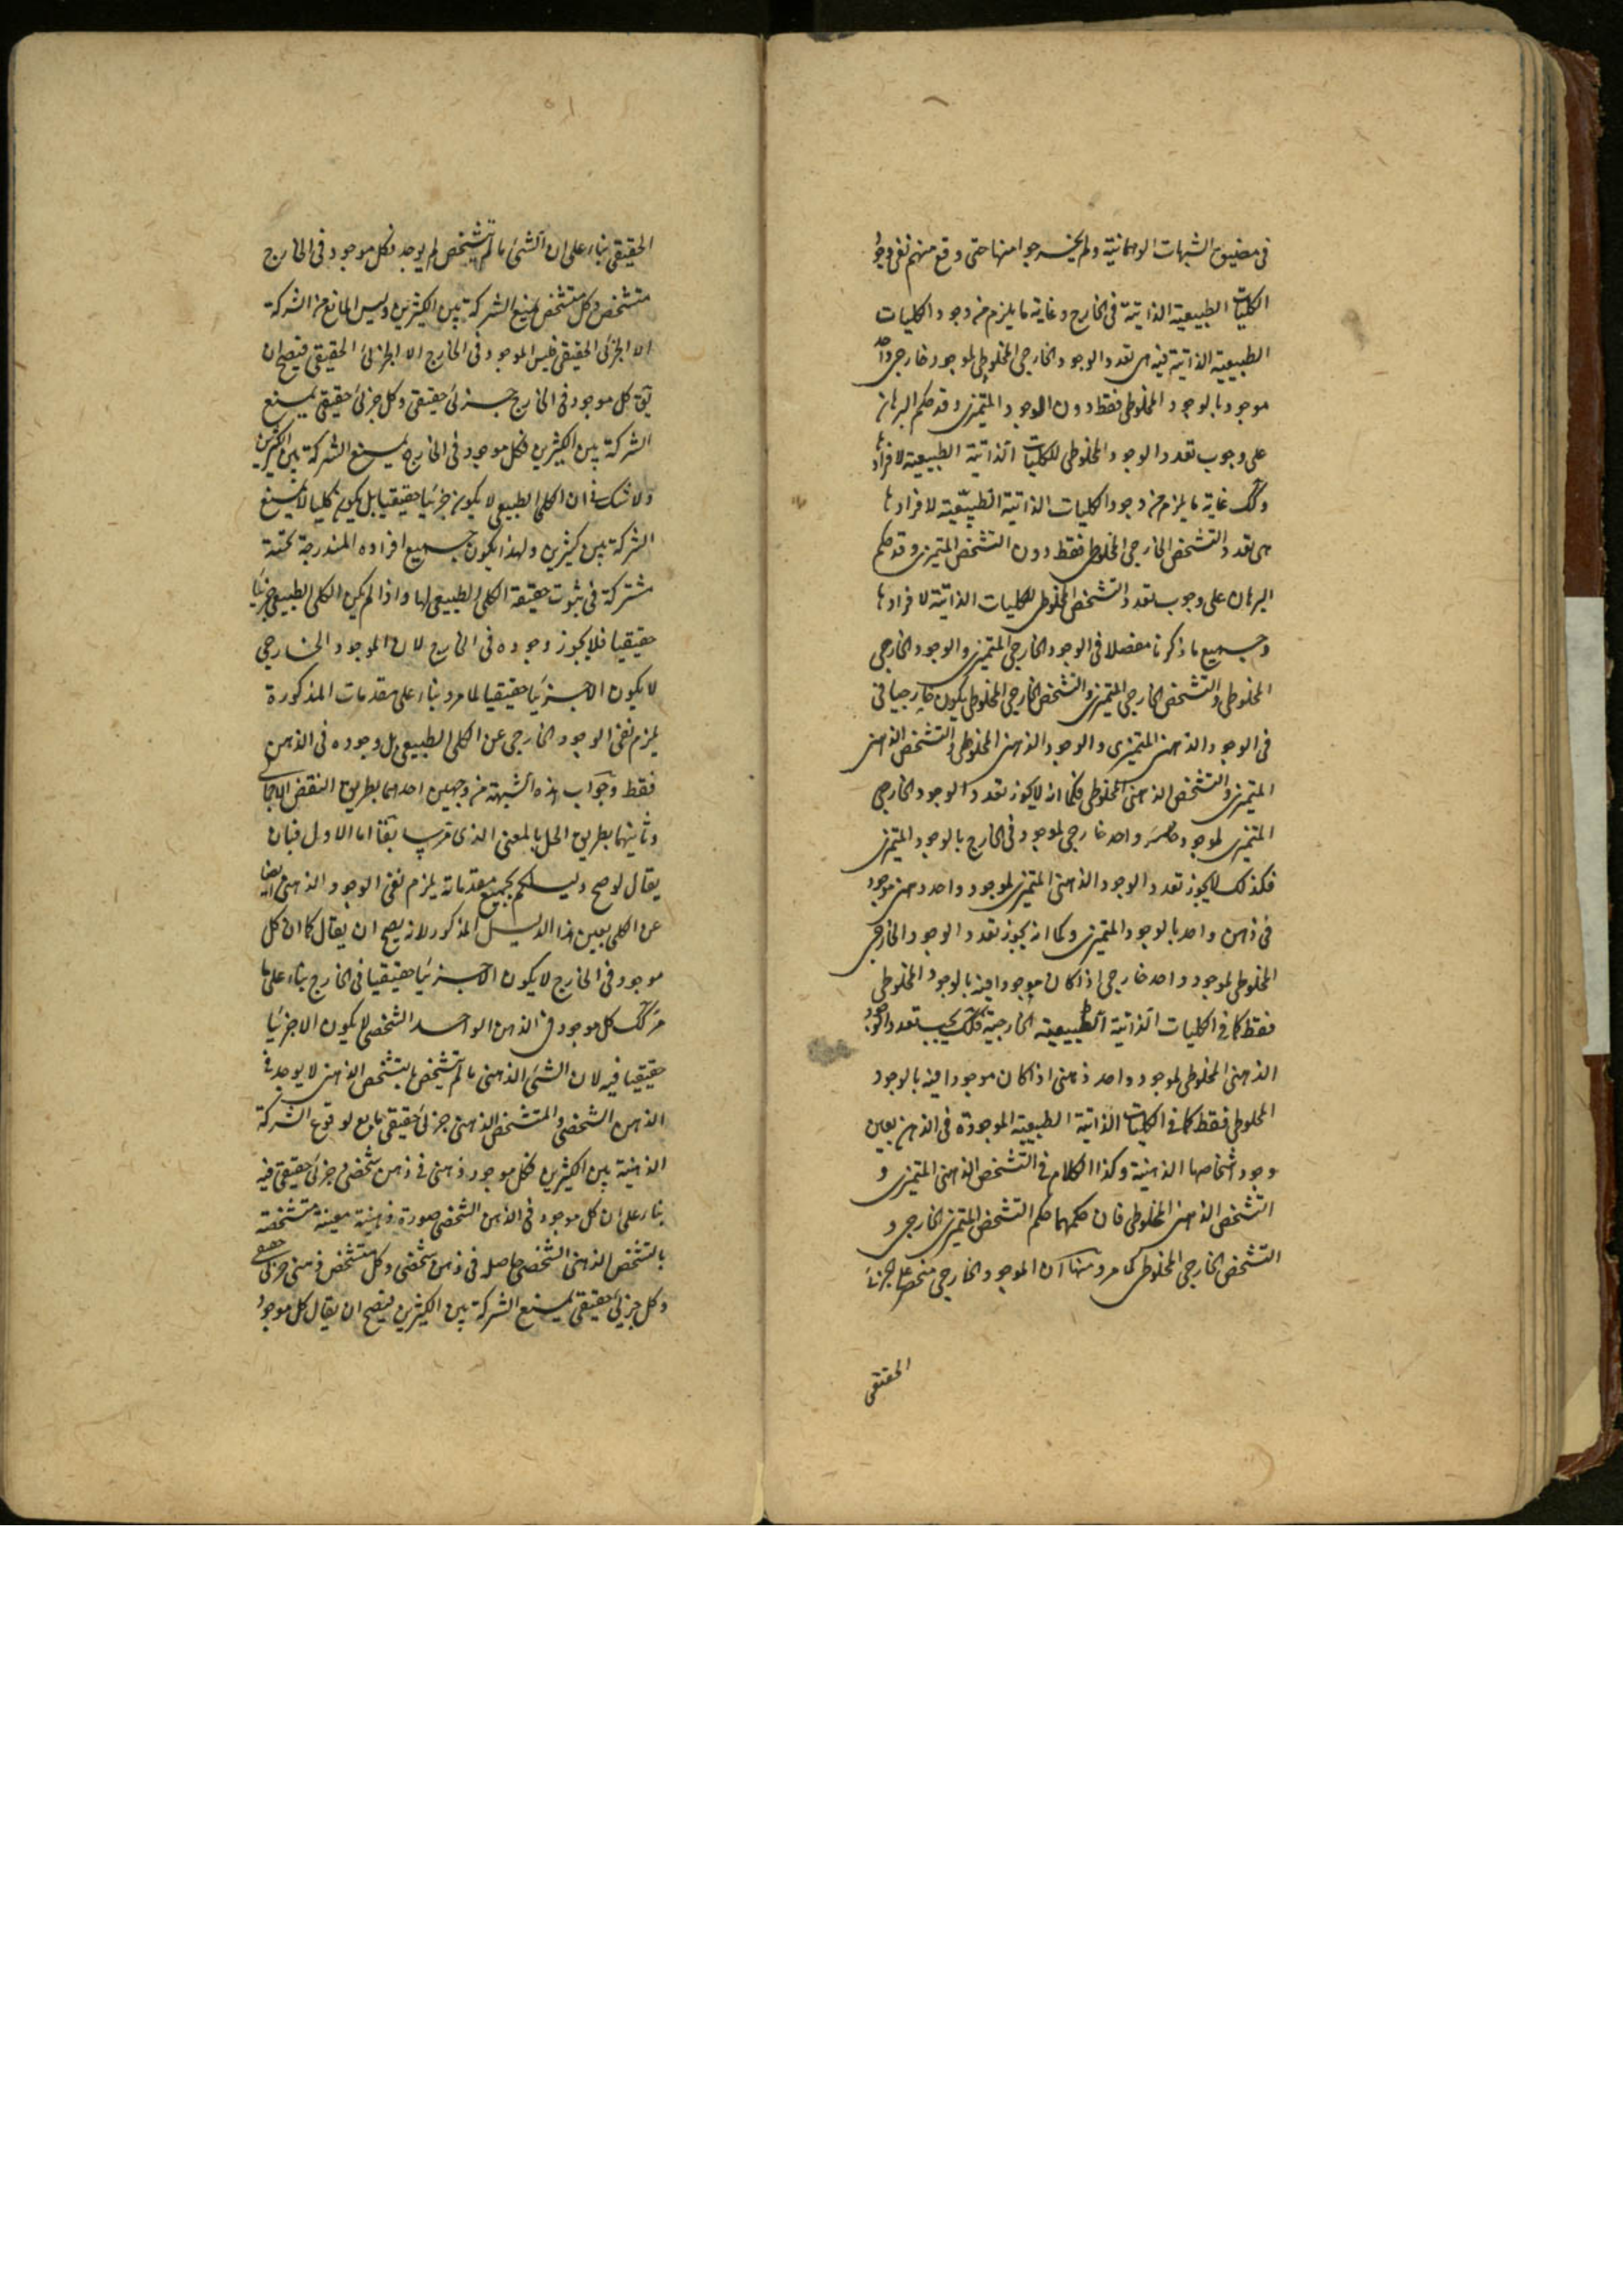 فى مضيق الشبهات الوهمانية ولم يخرجوا منها حتى وقع منهم نفى وجود
الكليات الطبيعية الذاتية فى الخارج وغاية ما يلزم من وجود الكليات
الطبيعية الذاتية فيه هى تعدد الوجود الخارجى المخلوطى لموجود خارجى واحد
موجود بالوجود المخلوطى فقط دون الوجود المتميزى وقد حكم البرهان
على وجوب تعدد الوجود المخلوطى للكليات الذاتية الطبيعية لافرادها
وكك غاية ما يلزم من وجود الكليات الذاتية الطبيعية لافرادها
هى تعدد التشخص الخارجى المخلوطى فقط دون التشخص المتميزى وقد حكم
البرهان على وجوب تعدد التشخص المخلوطى للكليات الذاتية لافرادها
وجميع ما ذكرنا مفصلا فى الوجود الخارجى المتميزى والوجود الخارجى
المخلوطى والتشخص الخارجى المتميزى والتشخص الخارجى المخلوطى يكون جارجيا فى
فى الوجود الذهنى المتميزى والوجود الذهنى المخلوطى والتشخص الذهنى
المتميزى والتشخص الذهنى المخلوطى فكما انه لا يجوز تعدد الوجود الخارجى
المتميزى لموجود واحد خارجى لموجود فى الخارج بالوجود المتميزى
فكذلك لا يجوز تعدد الوجود الذهنى المتميزى لموجود واحد ذهنى موجود
فى ذهن واحد بالوجود المتميزى وكما انه يجوز تعدد الوجود الخارجى
المخلوطى لموجود واحد خارجى اذا كان موجودا فيه بالوجود المخلوطى
فقط كما فى الكليات الذاتية الطبيعية الخارجية فكك يجب تعدد الوجود
الذهنى المخلوطى لموجود واحد ذهنى اذا كان موجودا فيه بالوجود
المخلوطى فقط كما فى الكليات الذاتية الطبيعية الموجودة فى الذهن بعين
وجود اشخاصها الذهنية وكذا الكلام فى التشخص الذهنى المتميزى و
التشخص الذهنى المخلوطى فان حكمهما حكم التشخص المتميزى الخارجى و
التشخص الخارجى المخلوطى كما مر ومنها ان الموجود الخارجى منحصر على الجزئى
الحقيقى
الحقيقى بناء على ان الشئ ما لم يتشخص لم يوجد فكل موجود فى الخارج
متشخص وكل متشخص يمنع الشركة بين الكثيرين وليس المانع من الشركة
الا الجزئى الحقيقى فليس الموجود فى الخارج الا الجزئى الحقيقى فيصح ان
يق كل موجود فى الخارج جزئى حقيقى وكل جزئى حقيقى يمنع
الشركة بين الكثيرين فكل موجود فى الخارج يمنع الشركة بين الكثيرين
ولا شك فى ان الكلى الطبيعى لا يكون جزئيا حقيقيا بل يكون كليا لا يمنع
الشركة بين كثيرين ولهذا يكون جميع افراده المندرجة تحته
مشتركة فى ثبوت حقيقة الكلى الطبيعى لها واذا لم يكن الكلى الطبيعى جزئيا
حقيقيا فلا يجوز وجوده فى الخارج لان الموجود الخارجى
لا يكون الا جزئيا حقيقيا لما مر وبناء على مقدمات المذكورة
يلزم نفى الوجود الخارجى عن الكلى الطبيعى بل وجوده فى الذهن
فقط وجواب هذه الشبهة من وجهين احدهما بطريق النقض الاجمالى
وثانيهما بطريق الحل بالمعنى الذى مر سابقا اما الاول فبان
يقال لو صح دليلكم بجميع مقدماته يلزم نفى الوجود الذهنى ايضا
عن الكلى بعين هذا الدليل المذكور لانه يصح ان يقال كما ان كل
موجود فى الخارج لا يكون الا جزئيا حقيقيا فى الخارج بناء على ما
مر كك كل موجود فى الذهن الواحد الشخصى لا يكون الا جزئيا
حقيقيا فيه لان الشئ الذهنى ما لم يتشخص بالتشخص الذهنى لا يوجد فى
الذهن الشخصى والمتشخص الذهنى جزئى حقيقى مانع لوقوع الشركة
الذهنية بين الكثيرين فكل موجود ذهنى فى ذهن شخصى جزئى حقيقى فيه
بناء على ان كل موجود فى الذهن الشخصى صورة ذهنية معينة متشخصة
بالتشخص الذهنى الشخصى حاصلة فى ذهن شخصى وكل متشخص ذهنى جزئى حقيقى
وكل جزئى حقيقى يمنع الشركة بين الكثيرين فيصح ان يقال كل موجود